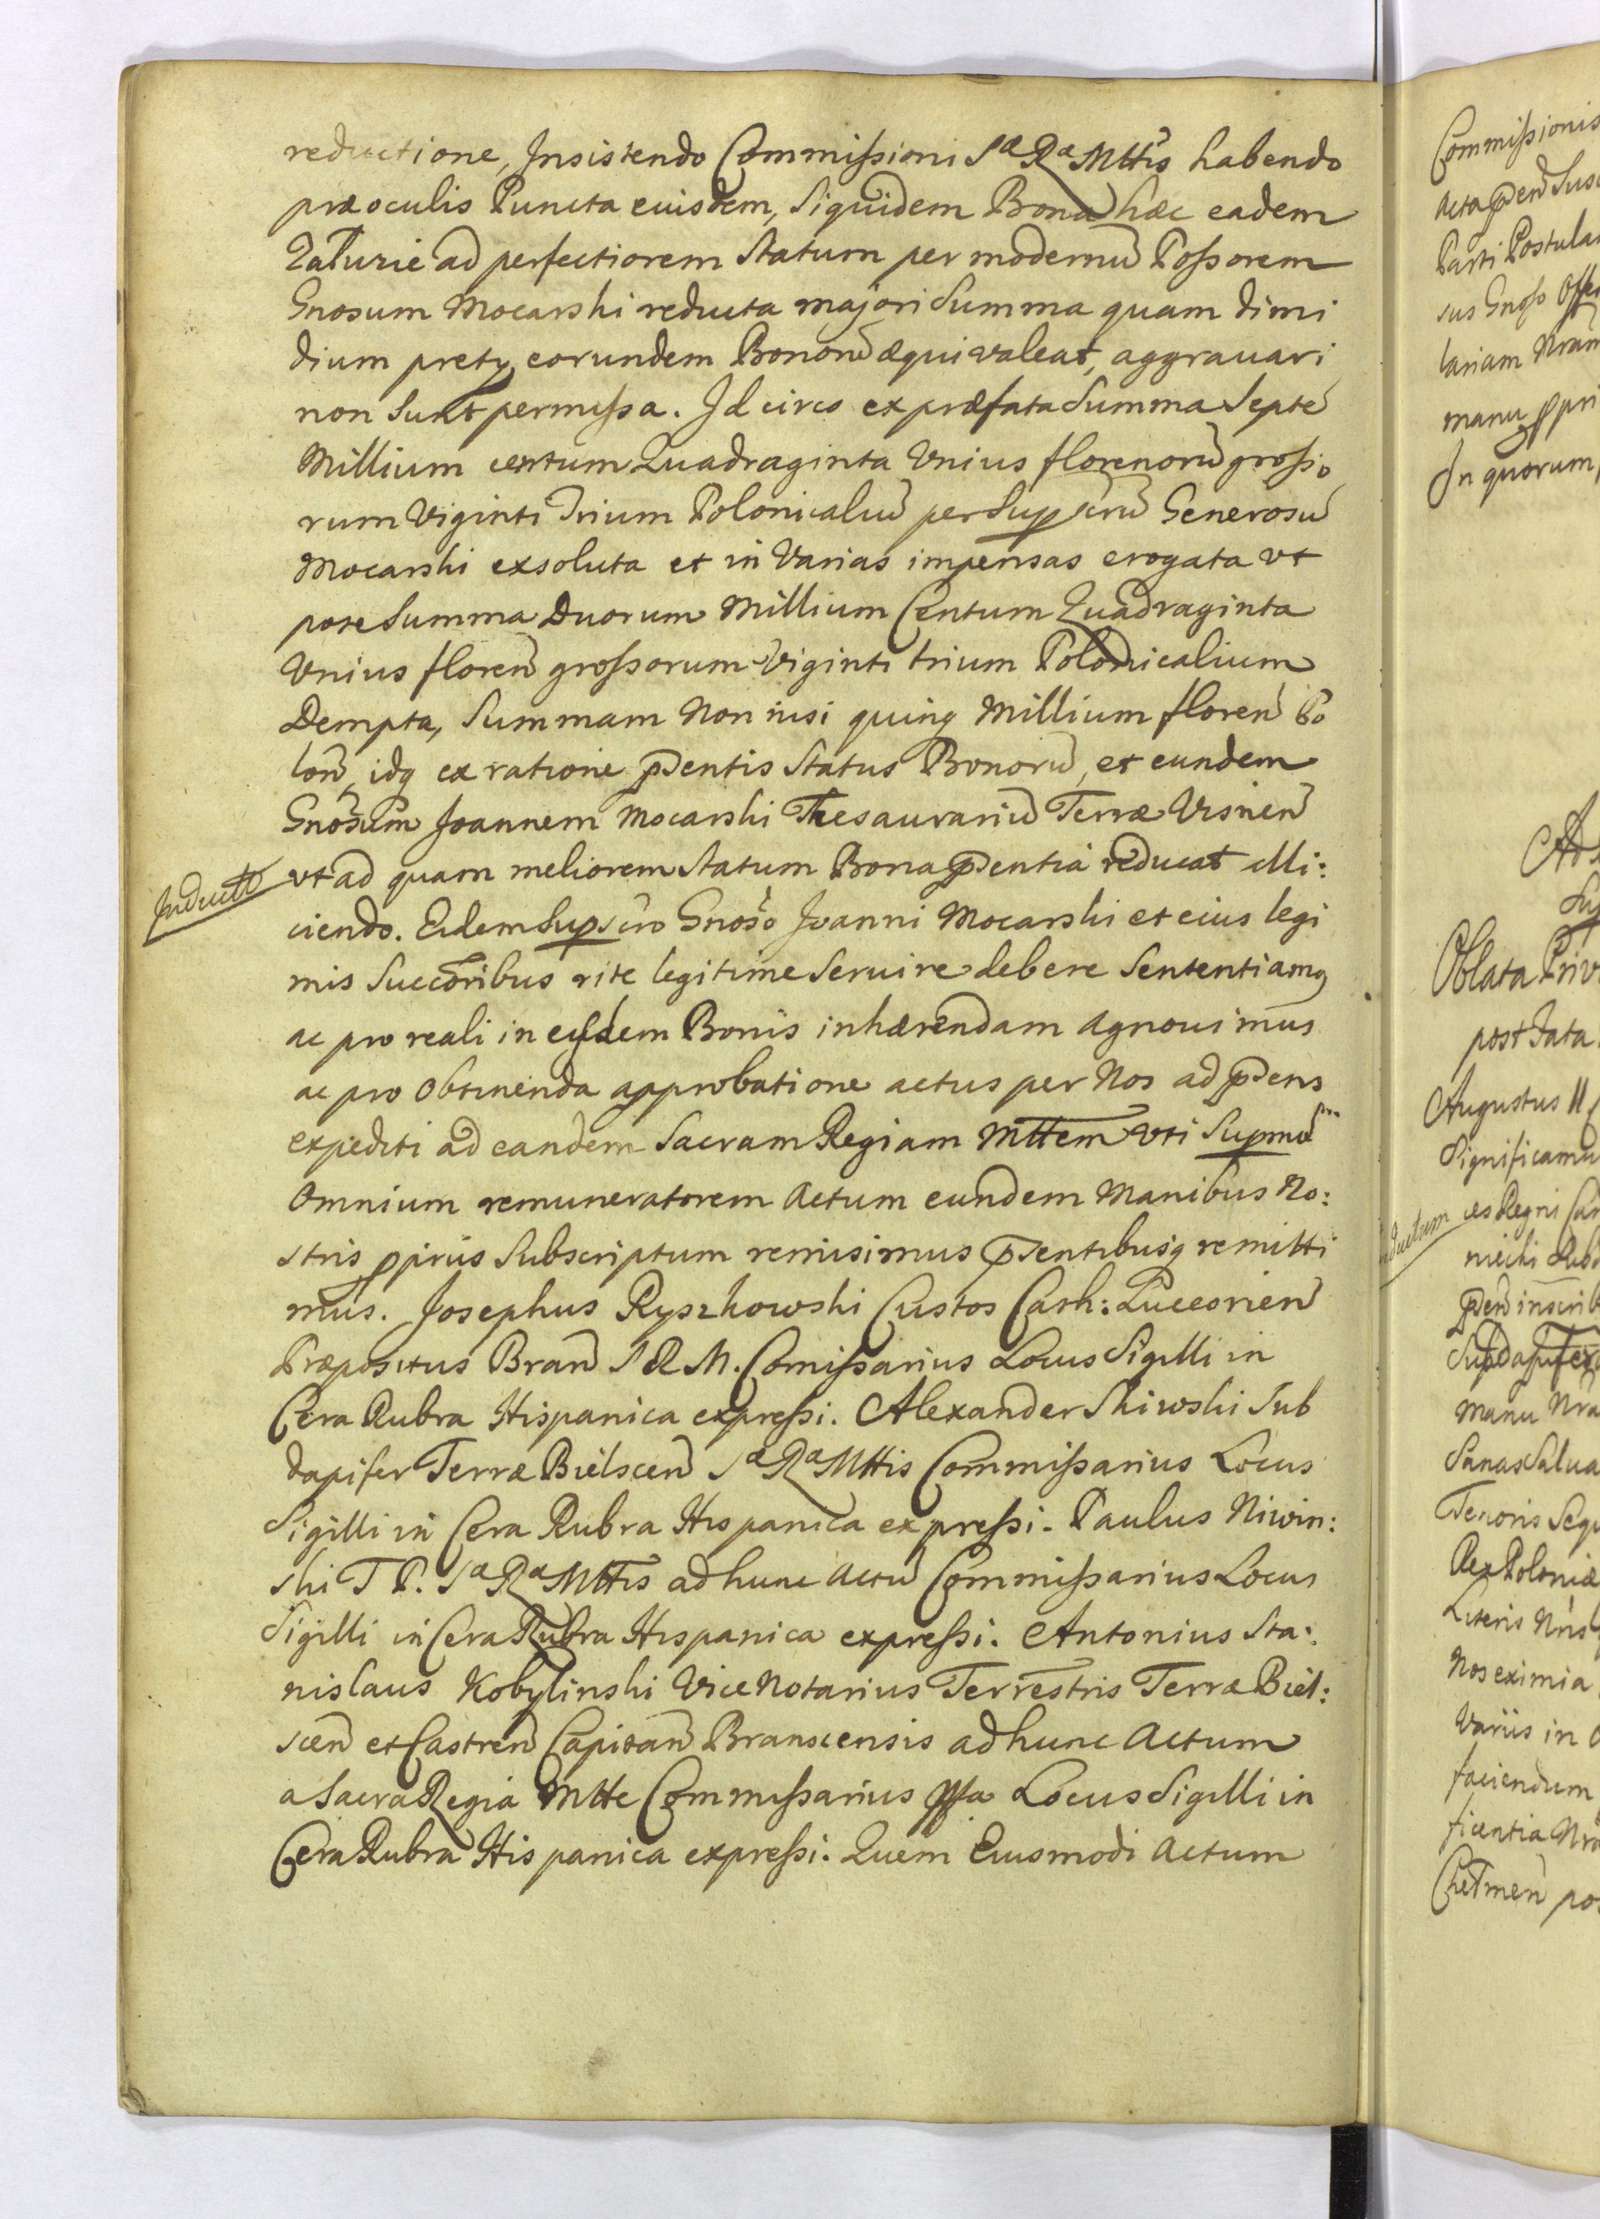 reductione, Insistendo Commissioni Sæ Ræ Mttis habendo
præoculis Puncta eiusdem, Siquidem Bona hæc eadem
Załuzie ad perfectiorem Statum per modernũ Possorem
Gnosum Mocarski reducta majori Summa quam dimi
dium prety eorundem Bonorũ æquivaleat, aggrauari
non Sunt permissa. Id circo ex præfata Summa Septẽ
Millium centum Quadraginta Vnius florenorũ grosso
rum Viginti Trium Polonicaliũ per Supscrũ Generosũ
Mocarski exsoluta et in Varias impensas erogata vt
pote Summa Duorum Millium Centum Quadraginta
Vnius floreñ grossorum Viginti trium Polonicalium
Dempta, Summam Non nisi quinq Millium floreñ Po
loñ, idq ex ratione pñdentis Status Bonorũ, et eundem
Gnosum Joannem Mocarski Thesaurariũ Terræ Visneñ
vt ad quam meliorem Statum Bona pñdentia reducat elli:
Inducto
ciendo. Eidem Supscro Gnoso Joanni Mocarski et eius legi
mis Succoribus rite legitime Seruire debere Sententiamq
ac pro reali in eysdem Bonis inhærendam Agnouimus
ac pro Obtinenda approbatione actus per Nos ad pñdens
expediti ad eandem Sacram Regiam Mttem Vti Supmũ
Omnium remuneratorem Actum eundem Manibus No:
stris ppriis Subscriptum remisimus pñdentibusq remitti
mus. Josephus Ryszkowski Custos Cath: Luceorieñ
Præpositus Brañ S R M. Comissarius Locus Sigilli in
Cera Rubra Hispanica expressi. Alexander Skiwski Sub
dapifer Terræ Bielsceñ Sæ Ræ Mttis Commissarius Locus
Sigilli in Cera Rubra Hispanica expressi. Paulus Niwin:
ski T P. Sæ Ræ Mttis ad hunc Actũ Commissarius Locus
Sigilli in Cera Rubra Hispanica expressi. Antonius Sta:
nislaus Kobylinski Vice Notarius Terrestris Terræ Biel:
sceñ et Castreñ Capitañ Branscensis ad hunc Actum
a Sacra Regia Mtte Commissarius Locus Sigilli in
Cera Rubra Hispanica expressi. Quem Eiusmodi Actum
Commissionis
Parti
In quorum
Oblata
post data
Augustus II
Significamu
es Regni
manu Nra
Sanas Salua
Tenoris Sequ
Rex Poloniæ
Literis Nris
Nos eximia
Variis in
faciendum
ficentia Nra